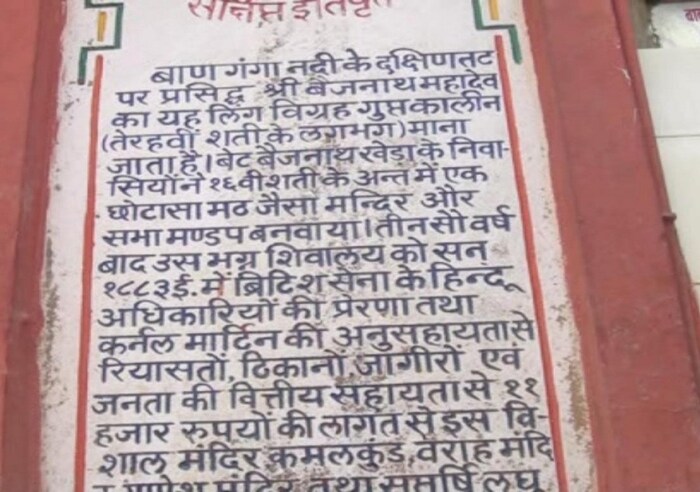 संक्षिप्त इतिवृत
बाण गंगा नदी के दक्षिण तट
पर प्रसिद्ध श्री बैजनाथ महादेव
का यह लिंग विग्रह गुप्तकालीन
(तेरहवीं शती के लगभग) माना
जाता है। बेट बैजनाथ खेडा के निवा-
सियों ने १६वीं शती के अन्त में एक
छोटा सा मठ जैसा मन्दिर और
सभा मण्डप बनवाया। तीन सौ वर्ष
बाद उस भग्न शिवालय को सन्
१८८३ई. में ब्रिटिश सेना के हिन्दू
अधिकारियों की प्रेरणा तथा
कर्नल मार्टिन की अनुसहायता से
रियासतों, ठिकानों, जागीरों एवं
जनता की वित्तीय सहायता से ११
हजार रुपयों की लागत से इस वि-
शाल मंदिर कमलकुंड, वराह मंदि
र गणेश मंदिर तथा सप्तर्षि लघु